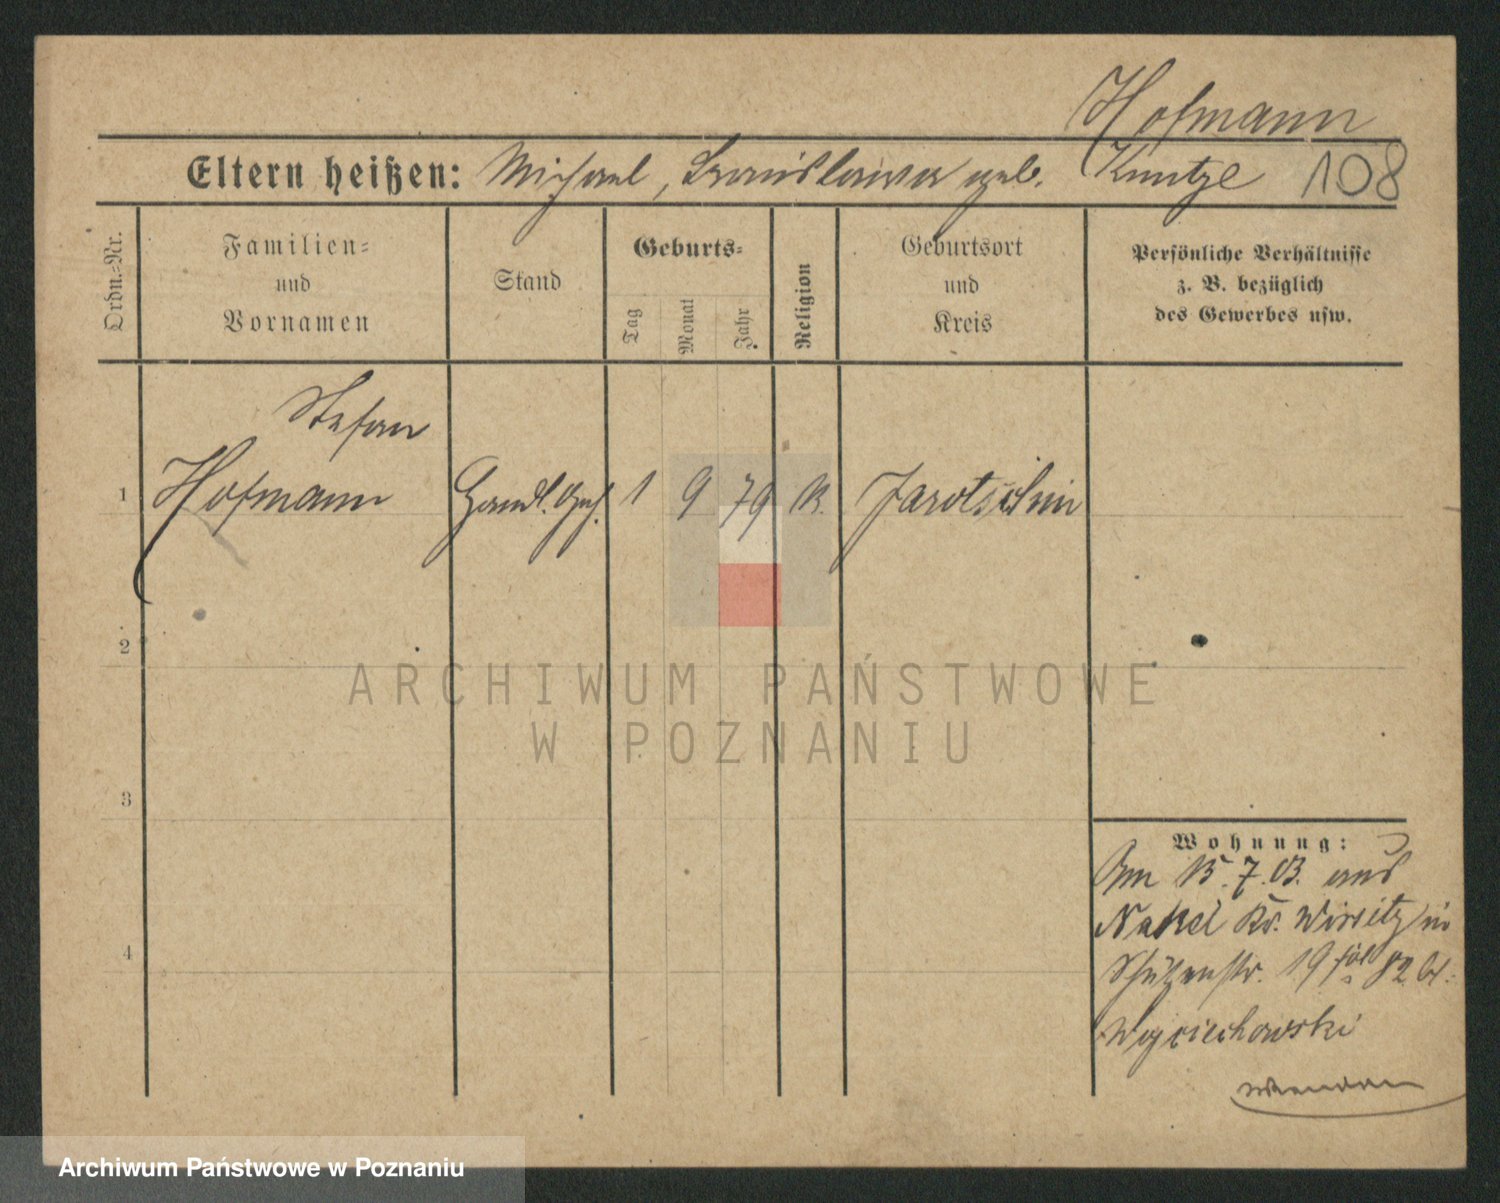 Hofmann
Eltern heißen: Michael, Stanislawa geb. Kuntze 108
Ordn.-Nr.
Familien-
und
Vornamen
Stand
Geburts-
Tag
Monat
Jahr
Religion
Geburtsort
und
Kreis
Persönliche Verhältnisse
z. B. bezüglich
des Gewerbes usw.
Stefan
1 Hofmann Handl. Geh. 1 9 79 K. Jarotschin
2
3
4
Wohnung:
Am 15.7.03. aus
Nakel Kr. Wirsitz in
Schützenstr. 19 82
Wojciechowski
wenden
ARCHIWUM PAŃSTWOWE
W POZNANIU
Archiwum Państwowe w Poznaniu